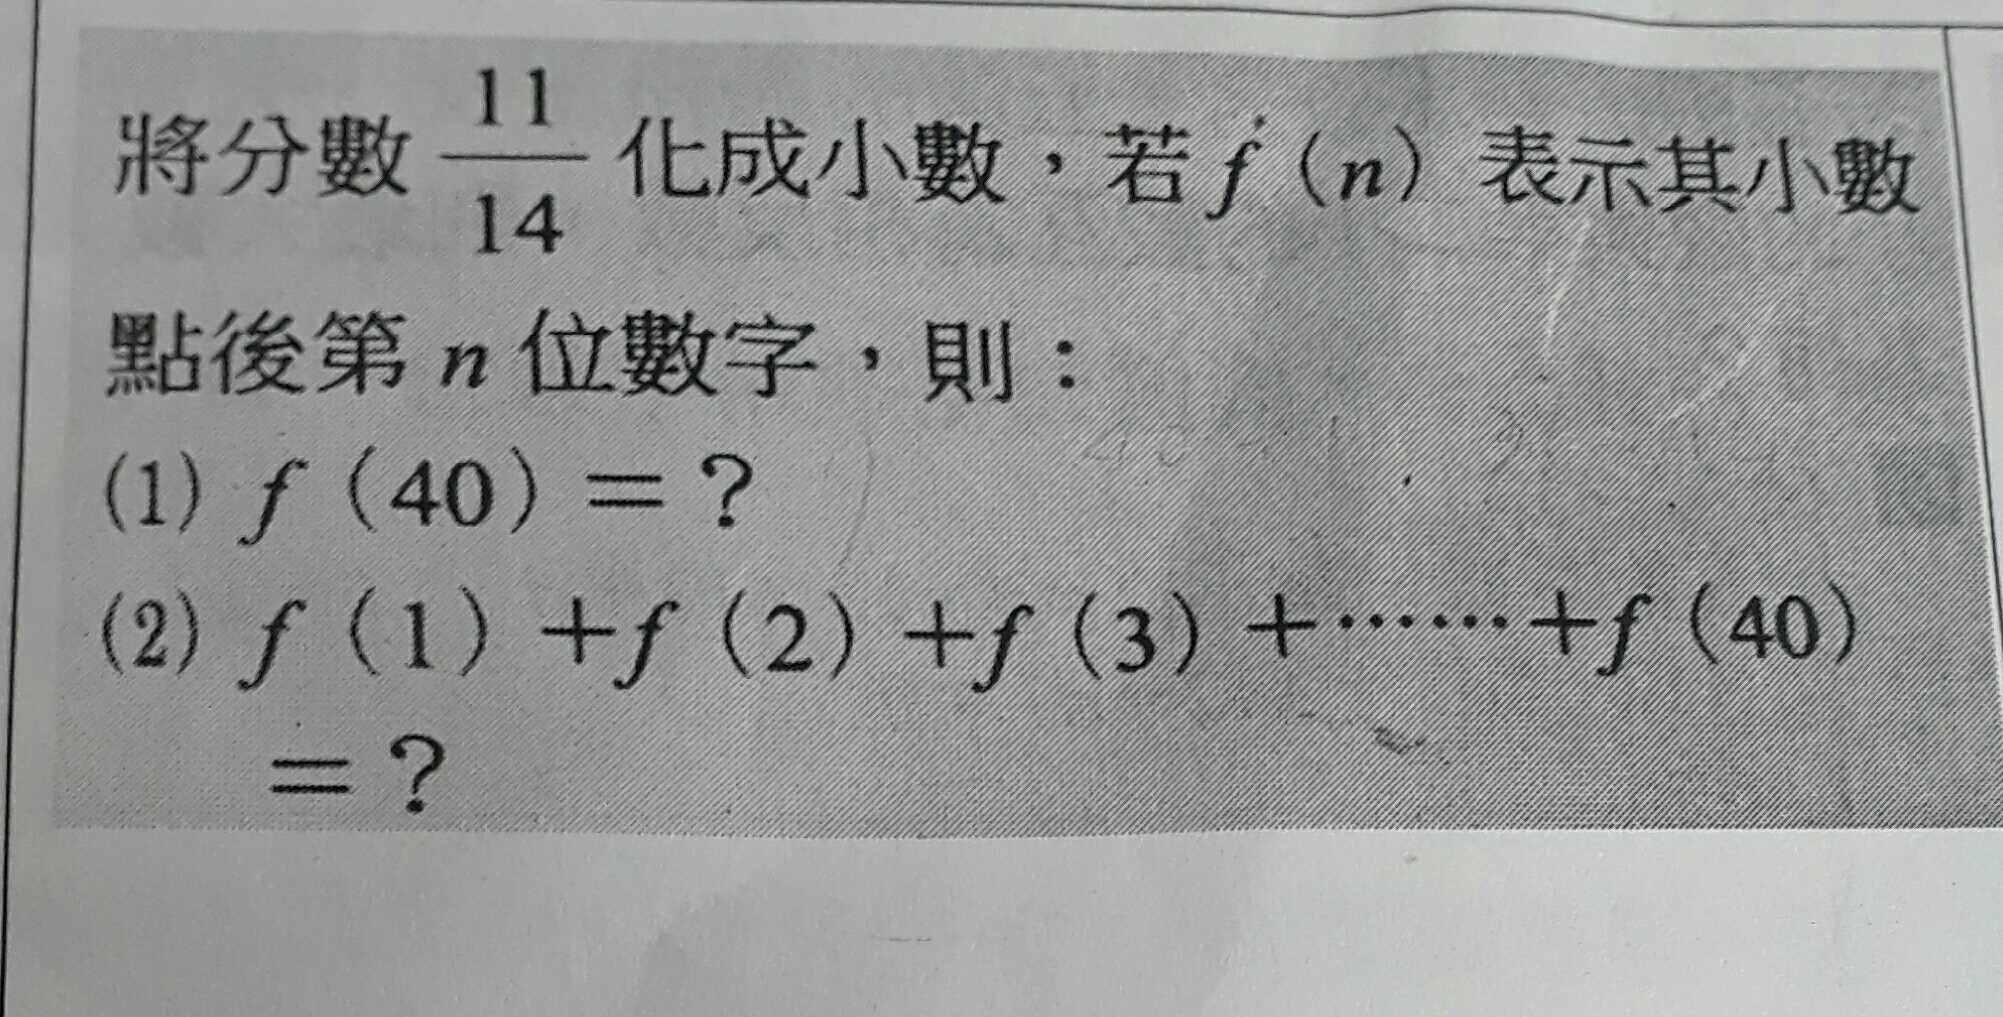 將分數 11/14 化成小數，若 f (n) 表示其小數
點後第 n 位數字，則：
(1) f (40) = ?
(2) f (1) +f (2) +f (3) +⋯⋯+f (40)
= ?